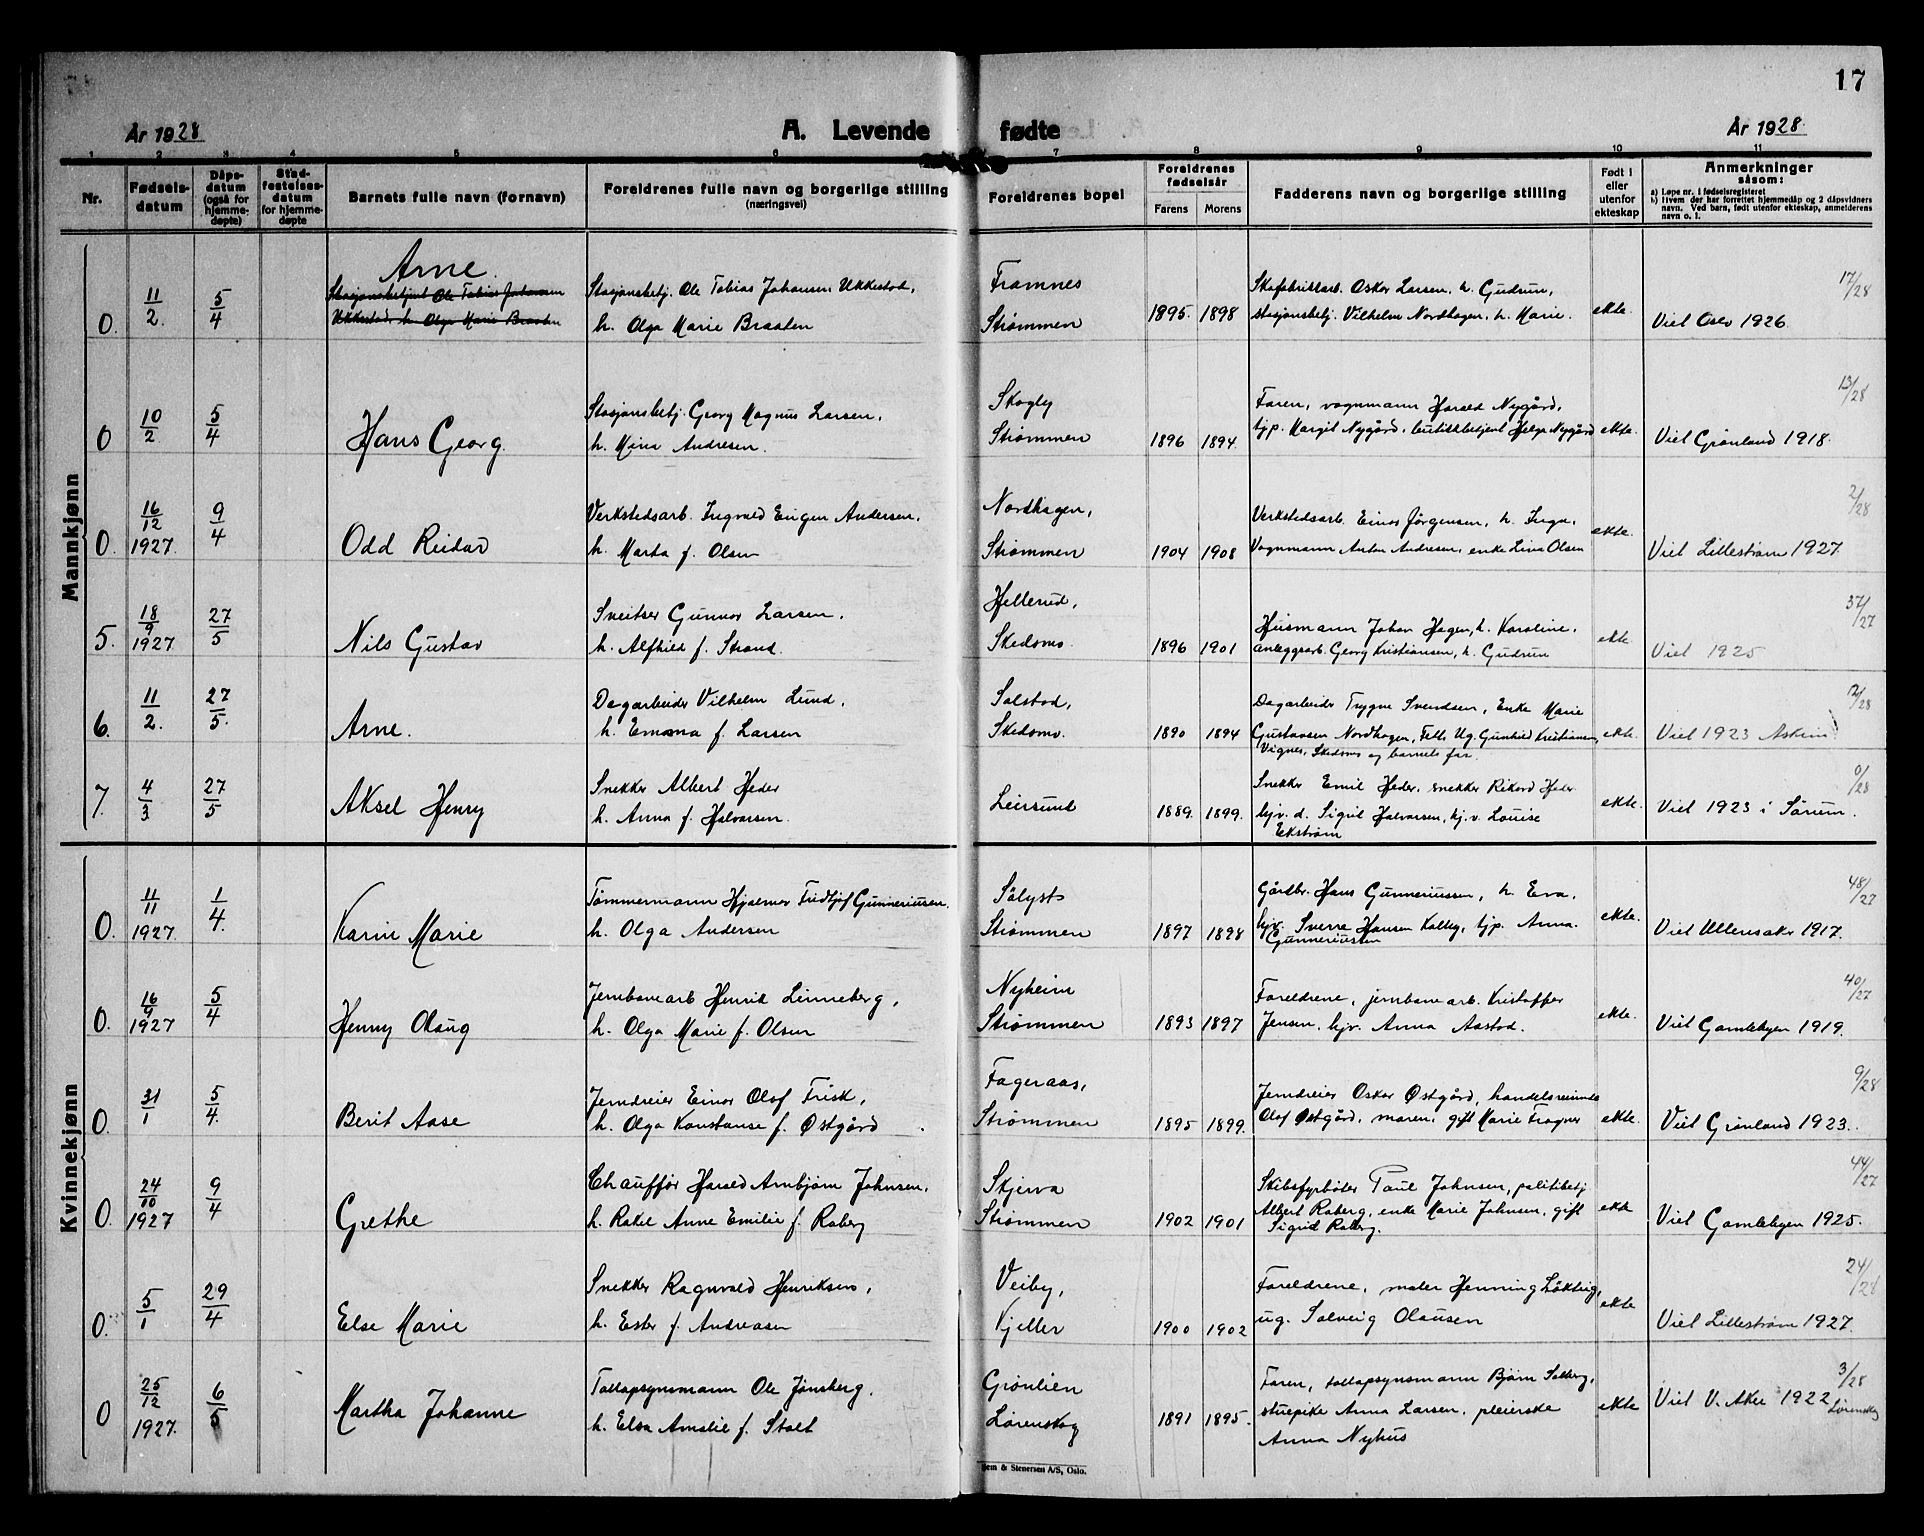 17
År 1928
A. Levende fødte
År 1928
1 2 3 4 5 6 7 8 9 10 11
Nr.
Fødsels-
datum
Dåps-
datum
(også for
hjemme-
døpte)
Stad-
festelses-
datum
for hjemme-
døpte
Barnets fulle navn (fornavn)
Foreldrenes fulle navn og borgerlige stilling
(næringsvei)
Foreldrenes bopel
Foreldrenes
fødselsår
Farens Morens
Fadderens navn og borgerlige stilling
Født i
eller
utenfor
ekteskap
Anmerkninger
såsom:
a) Løpe nr. i fødselsregisteret
b) Hvem der har forrettet hjemmedåp og 2 dåpsvidners
navn. Ved barn, født utenfor ekteskap, anmelderens
navn o. l.
Mannkjønn
Arne.
Stasjonsbetjent Ole Tobias Johansen
Ukkestad, h. Olga Marie Braaten
0. 11/2. 5/4
Stasjonsbetj. Ole Tobias Johansen Ukkestad,
h. Olga Marie Braaten
Framnes
Strømmen
1895. 1898
Skofabrikkarb. Oskar Larsen, h. Gudrun,
stasjonsbetj. Vilhelm Nordhagen, h. Marie.
ekte.
17/28
Viet Oslo 1926.
0 10/2 5/4
Hans Georg.
Stasjonsbetj. Georg Magnus Larsen,
h. Mina Andresen.
Skogly
Strømmen
1896 1894.
Faren, vognmann Harald Nygård,
tjp. Margit Nygård, butikkbetjent Helge Nygård
ekte.
13/28
Viet Grønland 1918.
0. 16/12 1927. 9/4
Odd Reidar
Verkstedsarb. Ingvald Eugen Andersen,
h. Marta f. Olsen
Nordhagen,
Strømmen
1904 1908
Verkstedsarb. Einar Jörgensen, h. Inga,
Vognmann Anton Andresen, enke Lina Olsen
ekte.
2/28
Viet Lillestrøm 1927.
5. 18/9 1927 27/5
Nils Gustav
Sveitser Gunnar Larsen,
h. Alfhild f. Strand.
Hellerud,
Skedsmo.
1896 1901
Husmann Johan Hagen, h. Karoline,
anleggsarb. Georg Kristiansen, h. Gudrun
ekte
37/27
Viet 1925
6. 11/2. 27/5.
Arne.
Dagarbeider Vilhelm Lund,
h. Emma f. Larsen
Solstad,
Skedsmo.
1890 1894
Dagarbeider Trygve Svendsen, Enke Marie
Gustavsen Nordhagen, Ug. Gunhild Kristiansen,
Vignes, Skedsmo og barnets far.
ekte.
2/28
Viet 1923 Askim
7. 4/3. 27/5
Aksel Henry
Snekker Albert Heder
h. Anna f. Halvorsen.
Leirsund
1889. 1899.
Snekker Emil Heder, snekker Rikard Heder
hjv. d. Sigrid Halvorsen, hj. v. Louise
Ekstrøm
ekte.
0/28
Viet 1923 i Sørum.
Kvinnekjønn
0. 11/11 1927. 1/4.
Karin Marie
Tømmermann Hjalmar Fridtjof Gunneriussen.
h. Olga Andersen
Sølyst
Strømmen
1897 1898
Gårdbr. Hans Gunneriussen, h. Eva.
hjv. Sverre Hansen Kolbg, tjp. Anna.
Gunneriussen
ekte.
48/27
Viet Ullensaker 1917.
0. 16/9 1927 5/4
Henny Olaug
Jernbanearb Henrik Linneberg,
h. Olga Marie f. Olsen
Nyheim
Strømmen
1893 1897
Foreldrene, jernbanearb. Kristoffer
Jensen, hjv. Anna Aastad.
ekte.
40/27
Viet Gamlebyen 1919.
0. 31/1 5/4.
Berit Aase
Jerndreier Einar Olaf Frisk,
h. Olga Konstanse f. Østgård.
Fageraas,
Strømmen
1895 1899.
Jerndreier Oskar Østgård, handelsreisende
Olaf Østgård, moren, gift Marie Fragner
ekte.
9/28
Viet Grønland 1923.
0. 24/10 1927 9/4
Grethe
Chauffør Harald Arnbjørn Johnsen,
h. Rakel Anne Emilie f. Raberg
Skjerva
Strømmen
1902 1901
Skibsfyrbøter Paul Johnsen, politibetj
Albert Raberg, enke Marie Johnsen, gift
Sigrid Raberg.
ekte
44/27
Viet Gamlebyen 1925.
0. 5/1 29/4
Else Marie
Snekker Ragnvald Henriksen,
h. Ester f. Andreasen
Veiby,
Kjeller
1900 1902
Foreldrene, maler Henning Løkterg,
ug. Solveig Olausen
ekte
24/28
Viet Lillestrøm 1927.
0 25/12 1927. 6/5
Martha Johanne
Tollopsynsmann Ole Jønsberg,
h. Elsa Amalie f. Stolt
Grønlien
Lørenskog
1891 1895.
Faren, tollopsynsmann Bjørn Solberg,
stuepike Anna Larsen, pleierske
Anna Nyhus
ekte
3/28
Viet V. Aker 1922
Lørenskog
& Stenersen A/S, Oslo.